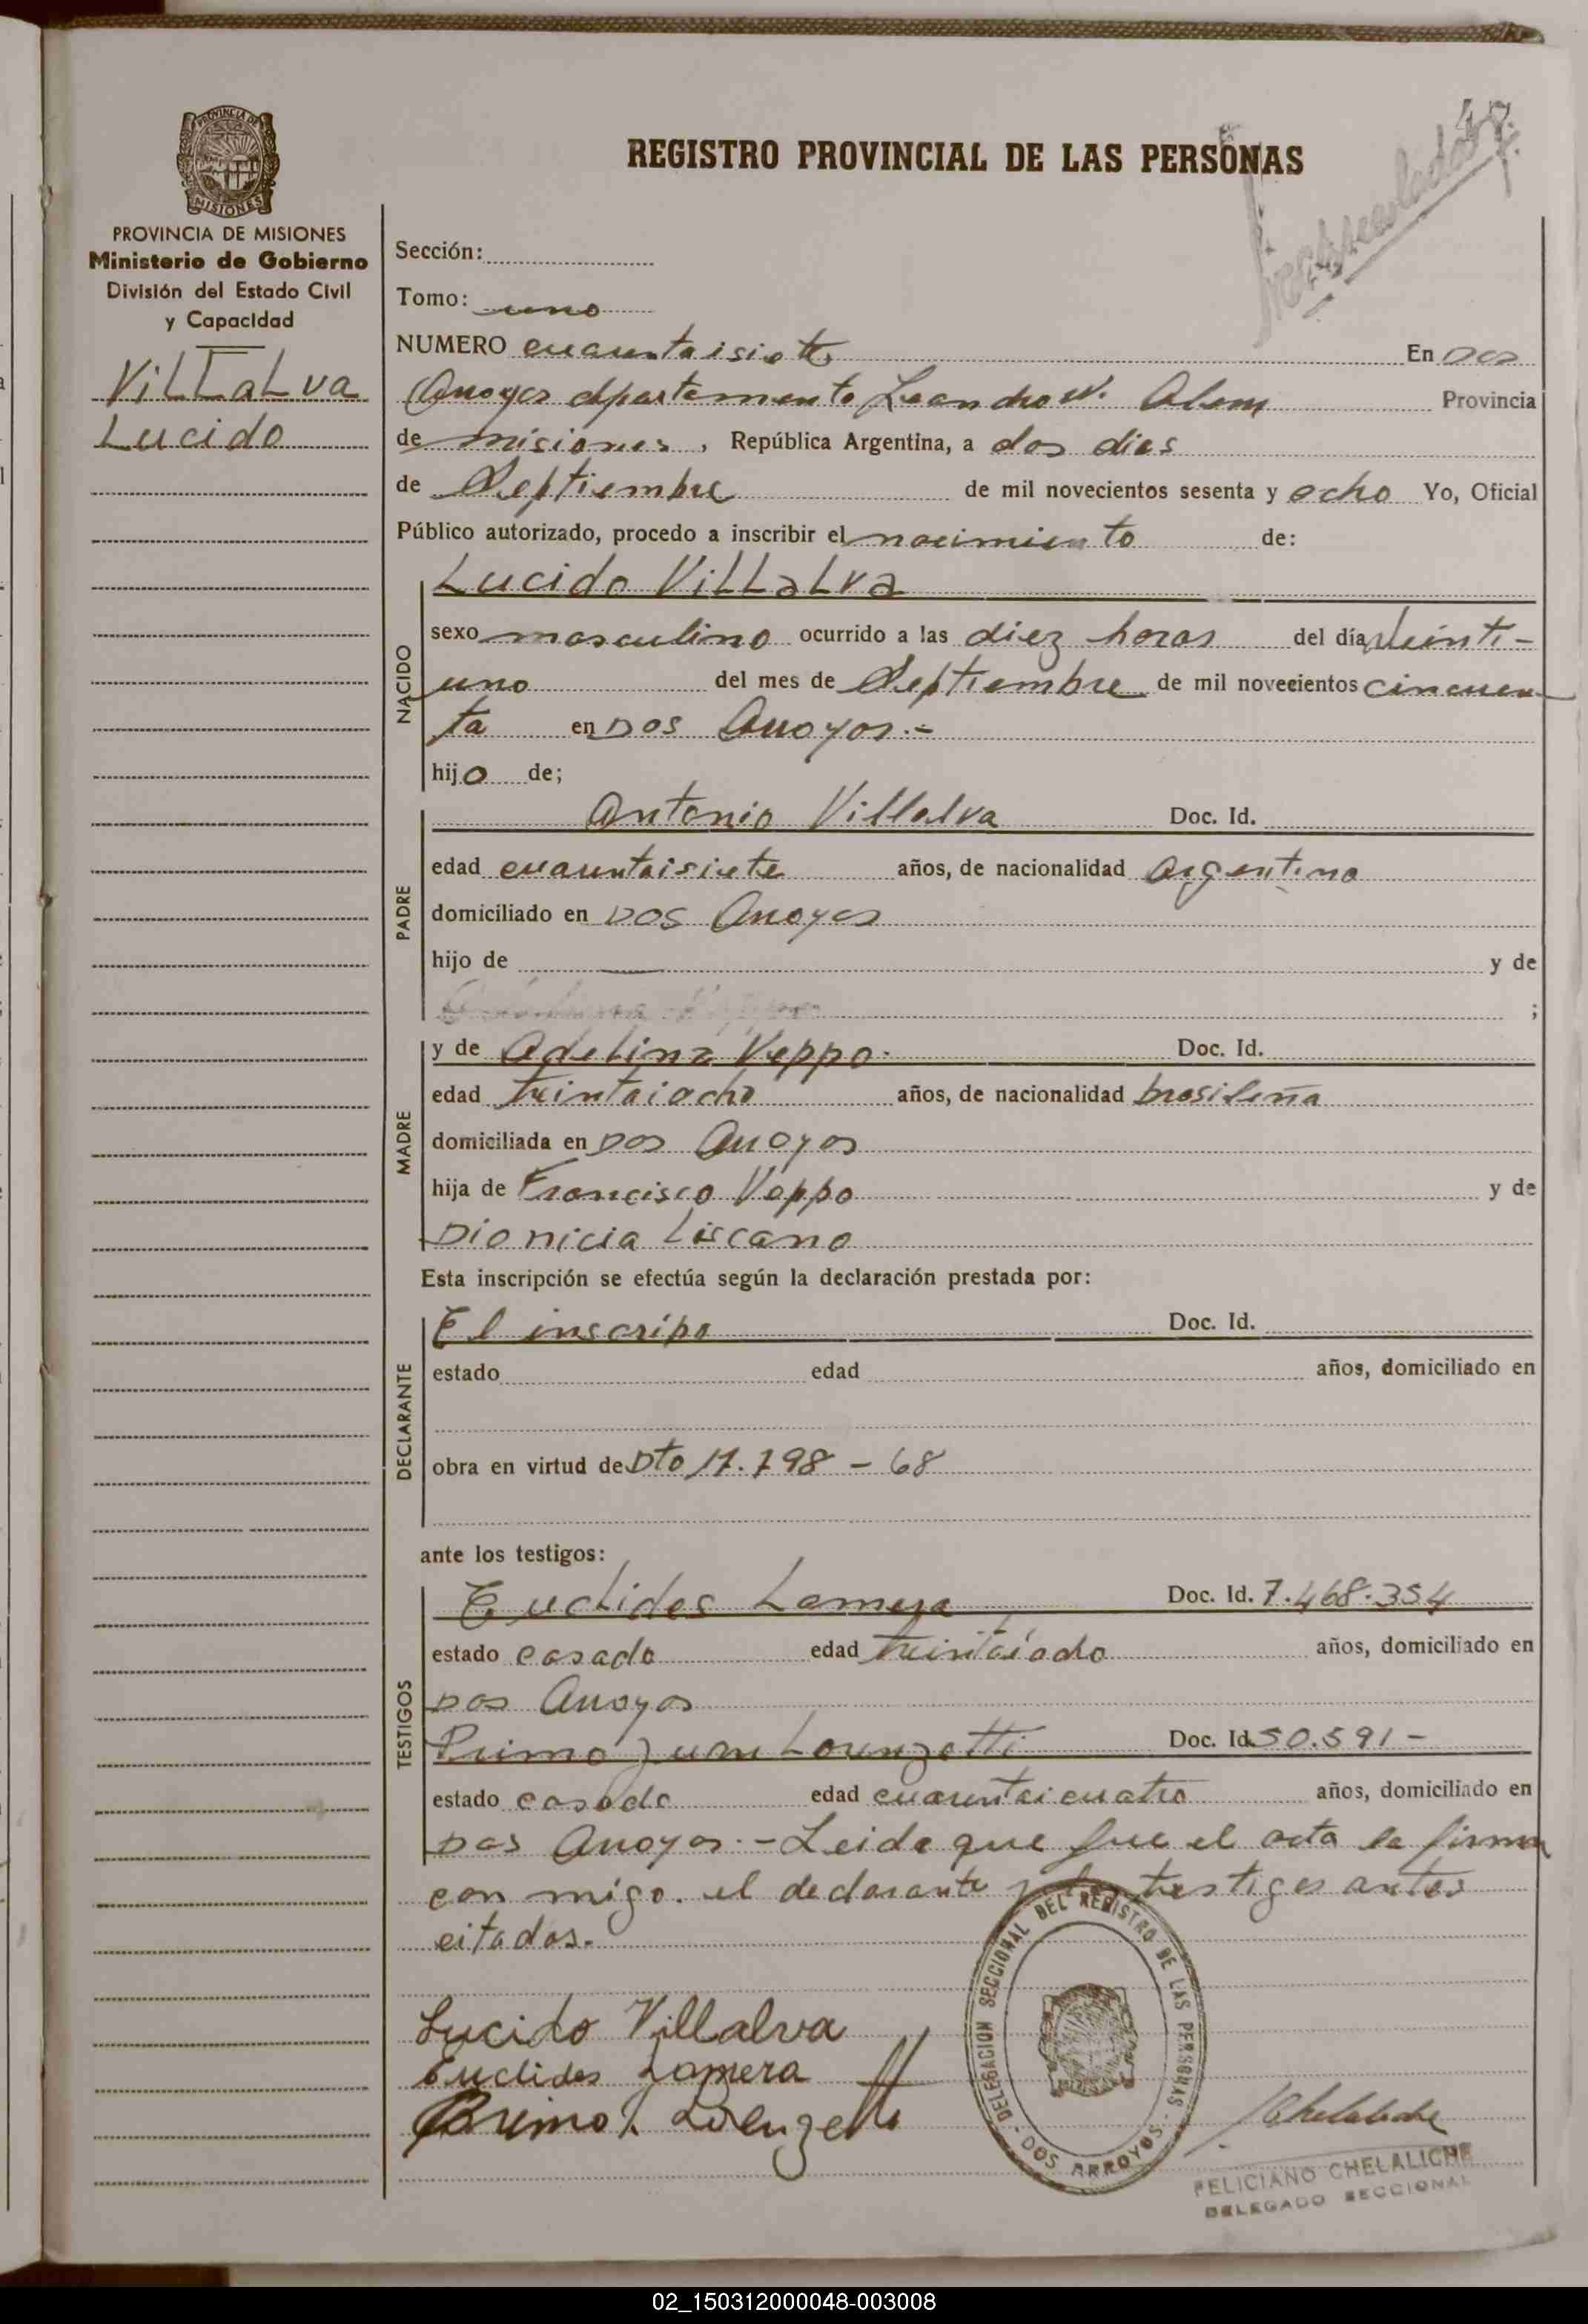 REGISTRO PROVINCIAL DE LAS PERSONAS
PROVINCIA DE MISIONES
Ministerio de Gobierno
División del Estado Civil
y Capacidad
VilLaLva
Lucido
Sección:
Tomo: uno
NUMERO cuarentaisiete En Dos
Arroyos departamento Leandro N. Alem Provincia
de misiones, República Argentina, a dos dias
de Septiembre de mil novecientos sesenta y ocho Yo, Oficial
Público autorizado, procedo a inscribir el nacimiento de:
NACIDO
Lucido VilLalva
sexo masculino ocurrido a las diez horas del día veinti-
uno del mes de Septiembre de mil novecientos cincuen
ta en Dos Arroyos.-
hijo de;
PADRE
Antonio Villalva Doc. Id.
edad cuarentaisiete años, de nacionalidad argentina
domiciliado en Dos Arroyos
hijo de — y de
;
MADRE
y de Adelina Veppo. Doc. Id.
edad treintaiocho años, de nacionalidad brasileña
domiciliada en Dos Arroyos
hija de Francisco Veppo y de
Dionicia Liscano
Esta inscripción se efectúa según la declaración prestada por:
DECLARANTE
El inscripo Doc. Id.
estado edad años, domiciliado en
obra en virtud de Dto 17.798 - 68
ante los testigos:
TESTIGOS
Euclides Lamera Doc. Id. 7.468.354
estado casado edad treintaiocho años, domiciliado en
Dos Arroyos
Primo Juan Lorenzetti Doc. Id. 50.591-
estado casado edad cuarentaicuatro años, domiciliado en
Dos Arroyos.- Leida que fue el acta la firma
con migo. el declarante y los testigos antes
citados.
Lucido Villalva
Euclides Lamera
Primo J. Lorenzetti
DELEGACION SECCIONAL DEL REGISTRO DE LAS PERSONAS - DOS ARROYOS -
FELICIANO CHELALICHE
DELEGADO SECCIONAL
02_150312000048-003008